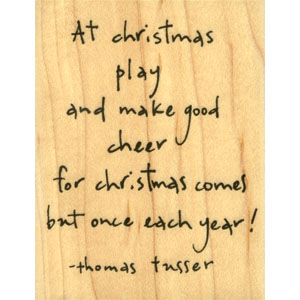 At christmas
play
and make good
cheer
for christmas comes
but once each year!
-thomas tusser